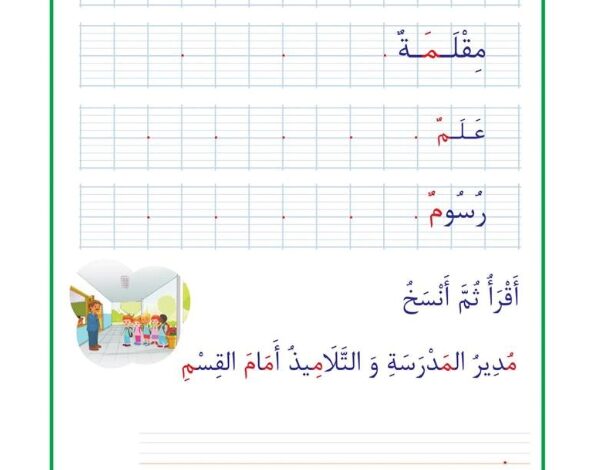 مِقْلَـمَـةٌ
عَـلَـمٌ
رُسُومٌ
أَقْرَأُ ثُمَّ أَنْسَخُ
مُدِيرُ المَدْرَسَةِ وَ التَّلَامِيذُ أَمَامَ القِسْمِ